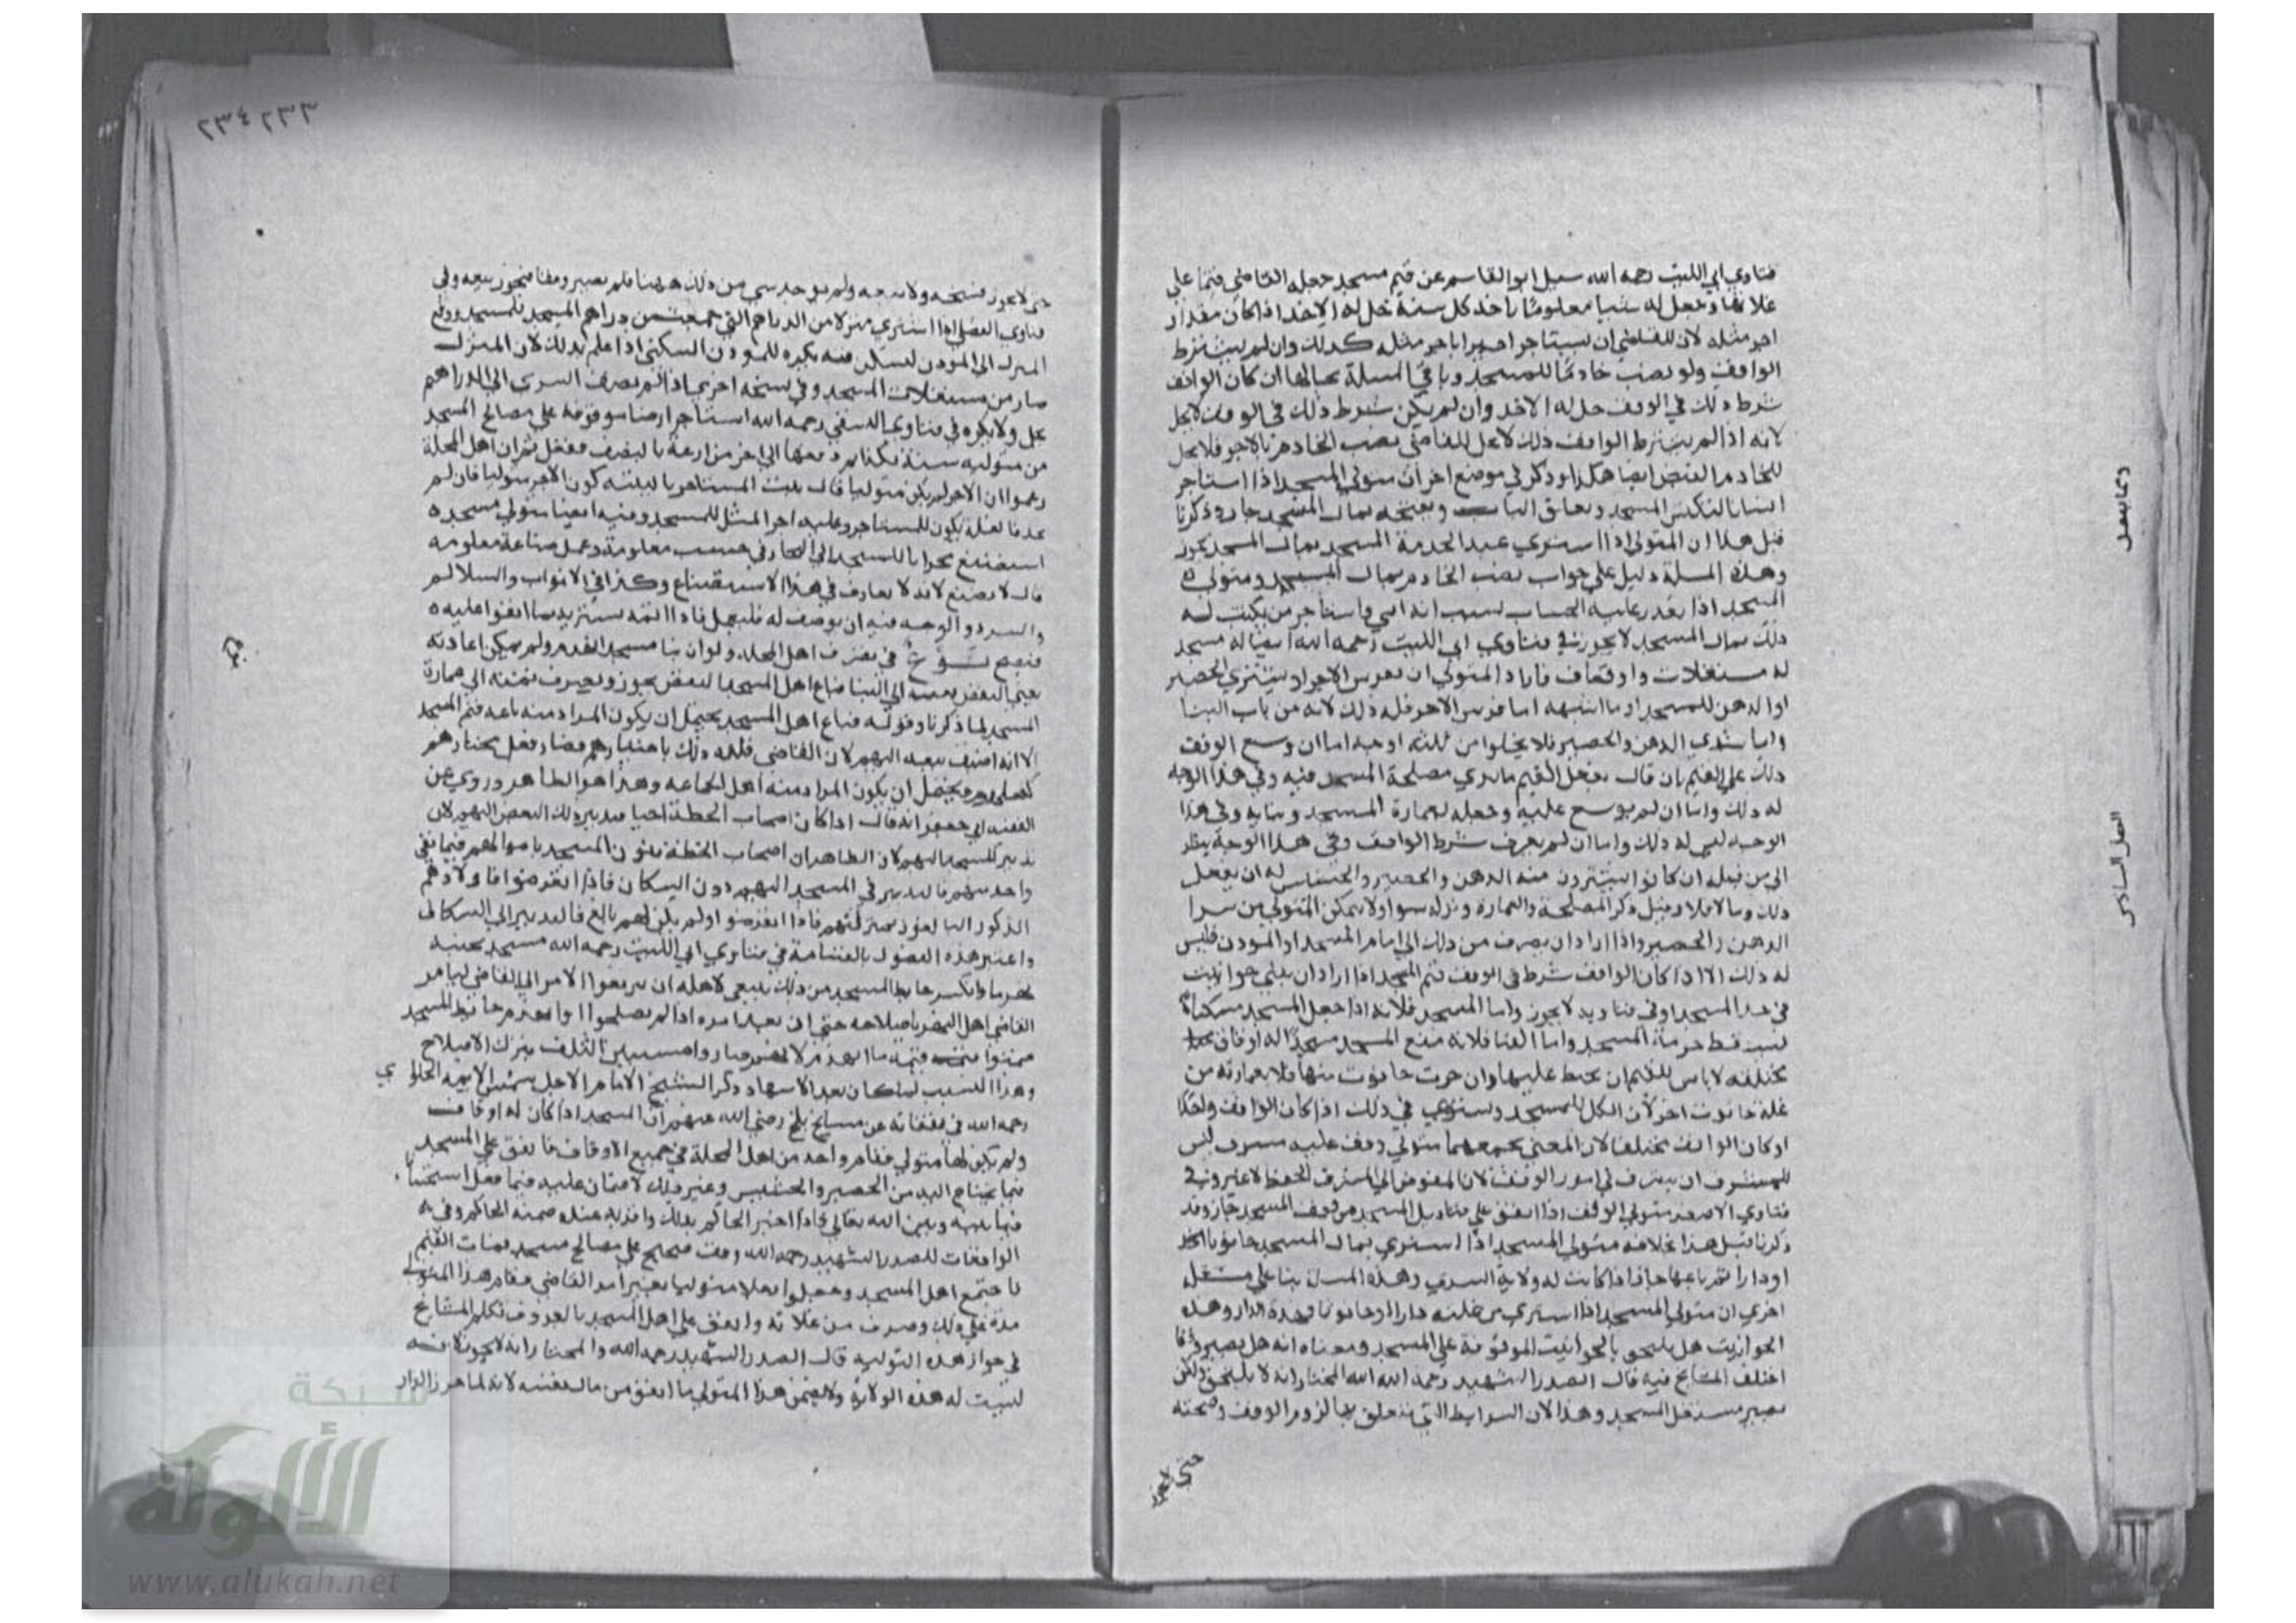 فتاوي ابي الليث رحمه الله سيل ابو القاسم عن قيم مسجد جعله القاضي قيما على
غلاتها وجعل له شيا معلوما ياخذ كل سنة حل له الاخذ اذا كان مقدار
اجر مثله لان للقاضي ان يستاجر اجيرا باجر مثله كذلك وان لم يشترط
الواقف ولو نصب خادما للمسجد وباقي المسلة بحالها ان كان الواقف
شرط ذلك في الوقف حل له الاخذ وان لم يكن شرط ذلك في الوقف لا يحل
لانه اذا لم يشترط الواقف ذلك لا يحل للقاضي نصب الخادم بالاجر فلا يحل
للخادم القبض ايضا هكذا وذكر في موضع اخر ان متولي المسجد اذا استاجر
انسانا لتكنس المسجد و الباب وبفتحه بمال المسجد جاز وذكرنا
قبل هذا ان المتولي اذا اشتري عبدا لخدمة المسجد بمال المسجد يجوز
وهذه المسلة دليل على جواب نصب الخادم بمال المسجد ومتولي
المسجد اذا تعذر عليه الحساب بسبب انه امي فاستاجر من يكتب له
ذلك بمال المسجد لا يجوز في فتاوي ابي الليث رحمه الله ايضا له مسجد
له مستغلات واوقاف فاراد المتولي ان يفرش الاجر او يشتري الحصير
او الدهن للمسجد او ما اشبهه اما فرش الاجر فله ذلك لانه من باب البنا
واما شري الدهن والحصير فلا يخلوا من ثلثه اوجه اما ان وسع الوقف
ذلك على القيم بان قال يفعل القيم ما يري مصلحة المسجد فيه وفي هذا الوجه
له ذلك واما ان لم يوسع عليه وجعله لعمارة المسجد وبنايه وفي هذا
الوجه ليس له ذلك واما ان لم يعرف شرط الواقف وفي هذا الوجه ينظر
الى من قبله ان كانوا يشترون منه الدهن والحصير والحشيش له ان يفعل
ذلك وما لا فلا وقيل ذكر المصلحة والعمارة وتركه سوا ولا يمكن المتولي من شرا
الدهن والحصير واذا اراد ان يصرف من ذلك الى امام المسجد او المودن فليس
له ذلك الا اذا كان الواقف شرط في الوقف قيم المسجد اذا اراد ان يبني حوانيت
في حد المسجد او في فنايه لا يجوز واما المسجد فلانه اذا جعل المسجد مسكنا
تسقط حرمة المسجد واما الفنا فلانه تبع المسجد مسجد له اوقاف
مختلفة لا باس للقيم ان يخلط عليها وان خربت حانوت منها فلا باس بعمارته من
غلة حانوت اخر لان الكل للمسجد ويستوي في ذلك اذا كان الواقف واحدا
او كان الواقف مختلفا لان المعنى يجمعهما متولي وقف عليه مشرف ليس
للمشرف ان يتصرف في امور الوقف لان المفوض الى المشرف الحفظ لا غير وفي
فتاوي الاصغر متولي الوقف اذا انفق على قناديل المسجد من وقف المسجد جاز وقد
ذكرنا قبل هذا خلافه متولي المسجد اذا اشتري بمال المسجد حانوتا
او دارا ثم باعها جاز اذا كانت له ولاية الشري وهذه المسلة بنا على مسلة
اخري ان متولي المسجد اذا اشتري من غلته دارا او حانوتا فهذه الدار وهذه
الحوانيت هل يلتحق بالحوانيت الموقوفة على المسجد ومعناه انه هل يصير وقفا
اختلف المشايخ فيه قال الصدر الشهيد رحمه الله المختار انه لا يلتحق ولكن
يصير مستغل المسجد وهذا لان الشرايط التي تتعلق بها لزوم الوقف وصحته
حتى لا يجوز
وما يتصل
الفصل السادس
٢٣٣ ٢٣٤
حتى لا يجوز فسخه ولا بيعه ولم يوجد شي من ذلك ههنا فلم يصير وقفا فيجوز بيعه وفي
فتاوي الفضلي اذا اشتري منزلا من الدراهم التي جمعت من دراهم المسجد للمسجد ودفع
المنزل الى المودن ليسكن فيه يكره للمودن السكنى اذا علم بذلك لان المنزل
صار من مستغلات المسجد وفي نسخه اخري اذا لم يصرف الشري الى الدراهم
يحل ولا يكره في فتاوي النسفي رحمه الله استاجر ارضا موقوفة على مصالح المسجد
من متوليه سنة بكذا ثم دفعها الى اخر مزارعة بالنصف ففعل ثم ان اهل المحلة
زعموا ان الاجر لم يكن متوليا قال يثبت المستاجر بالبينه كون الاجر متوليا فان لم
يجد فالغلة يكون للمستاجر وعليه اجر المثل للمسجد وفيه ايضا متولي مسجد
استصنع محرابا للمسجد الى النجار في خشب معلومة وعمل صناعة معلومه
قال لا يصنع لانه لا تعارف في هذا الاستصناع وكذا في الابواب والسلالم
والسرر والوجه فيه ان يوصف له فليعمل فاذا اتمه يشتريه بما اتفقوا عليه
فيصح نوع في تصرف اهل المحلة ولو ان بنا مسجد انهدم ولم يمكن اعادته
النقض بعينه الى البنا فباع اهل المسجد النقض يجوز ويصرف ثمنه الى عمارة
المسجد لما ذكرنا وقوله فباع اهل المسجد يحتمل ان يكون المراد منه باعه قيم المسجد
الا انه اضيف بيعه اليهم لان القاضي قلده ذلك باختيارهم فصار فعل مختارهم
كفعلهم ويحتمل ان يكون المراد منه اهل الجماعه وهذا هو الظاهر وروي عن
الفقيه ابي جعفر انه قال اذا كان اصحاب الخطة احيا فتدبير ذلك النقض اليهم لان
تدبير المسجد اليهم لان الظاهر ان اصحاب الخطة بنون المسجد باموالهم فما بقي
واحد منهم فالتدبير في المسجد اليهم دون السكان فاذا انقرضوا فاولادهم
الذكور البالغون بمنزلتهم فاذا انقرضوا ولم يكن لهم بالغ فالتدبير الى السكان
واعتبر هذه الفصول بالقسامة في فتاوي ابي الليث رحمه الله مسجد بجنبه
نهر ما وانكسر حايط المسجد من ذلك ينبغي لاهله ان يرفعوا الامر الى القاضي ليامر
القاضي اهل النهر باصلاحه حتى ان بعد امره اذا لم يصلحوا وانهدم حايط المسجد
ضمنوا قيمة ما انهدم لانهم صاروا متسببين للتلف بترك الاصلاح
وهذا السبب كان بعد الاشهاد وذكر الشيخ الامام الاجل شمس الايمه الحلواي
رحمه الله في نفقاته عن مشايخ بلخ رضي الله عنهم ان المسجد اذا كان له اوقاف
ولم يكن لها متولي فقام واحد من اهل المحلة في جميع الاوقاف فانفق على المسجد
فيما يحتاج اليه من الحصير والحشيش وغير ذلك لا ضمان عليه فيما فعل استحسانا
فيما بينه وبين الله تعالى فاذا اخبر الحاكم بذلك واقر به عنده ضمنه الحاكم وفي
الواقعات للصدر الشهيد رحمه الله وقف صحيح على مصالح مسجد فمات القيم
فاجتمع اهل المسجد وجعلوا رجلا متوليا بغير امر القاضي فقام هذا المتولي
مدة على ذلك وصرف من غلاته وانفق على اهل المسجد بالمعروف تكلم المشايخ
في جواز هذه التولية قال الصدر الشهيد رحمه الله والمختار انه لا يجوز لانه
ليست له هذه الولاية ولا يضمن هذا المتولي ما انفق من مال نفسه لانه لما اجر الدار
شبكة
الألوكة
www.alukah.net